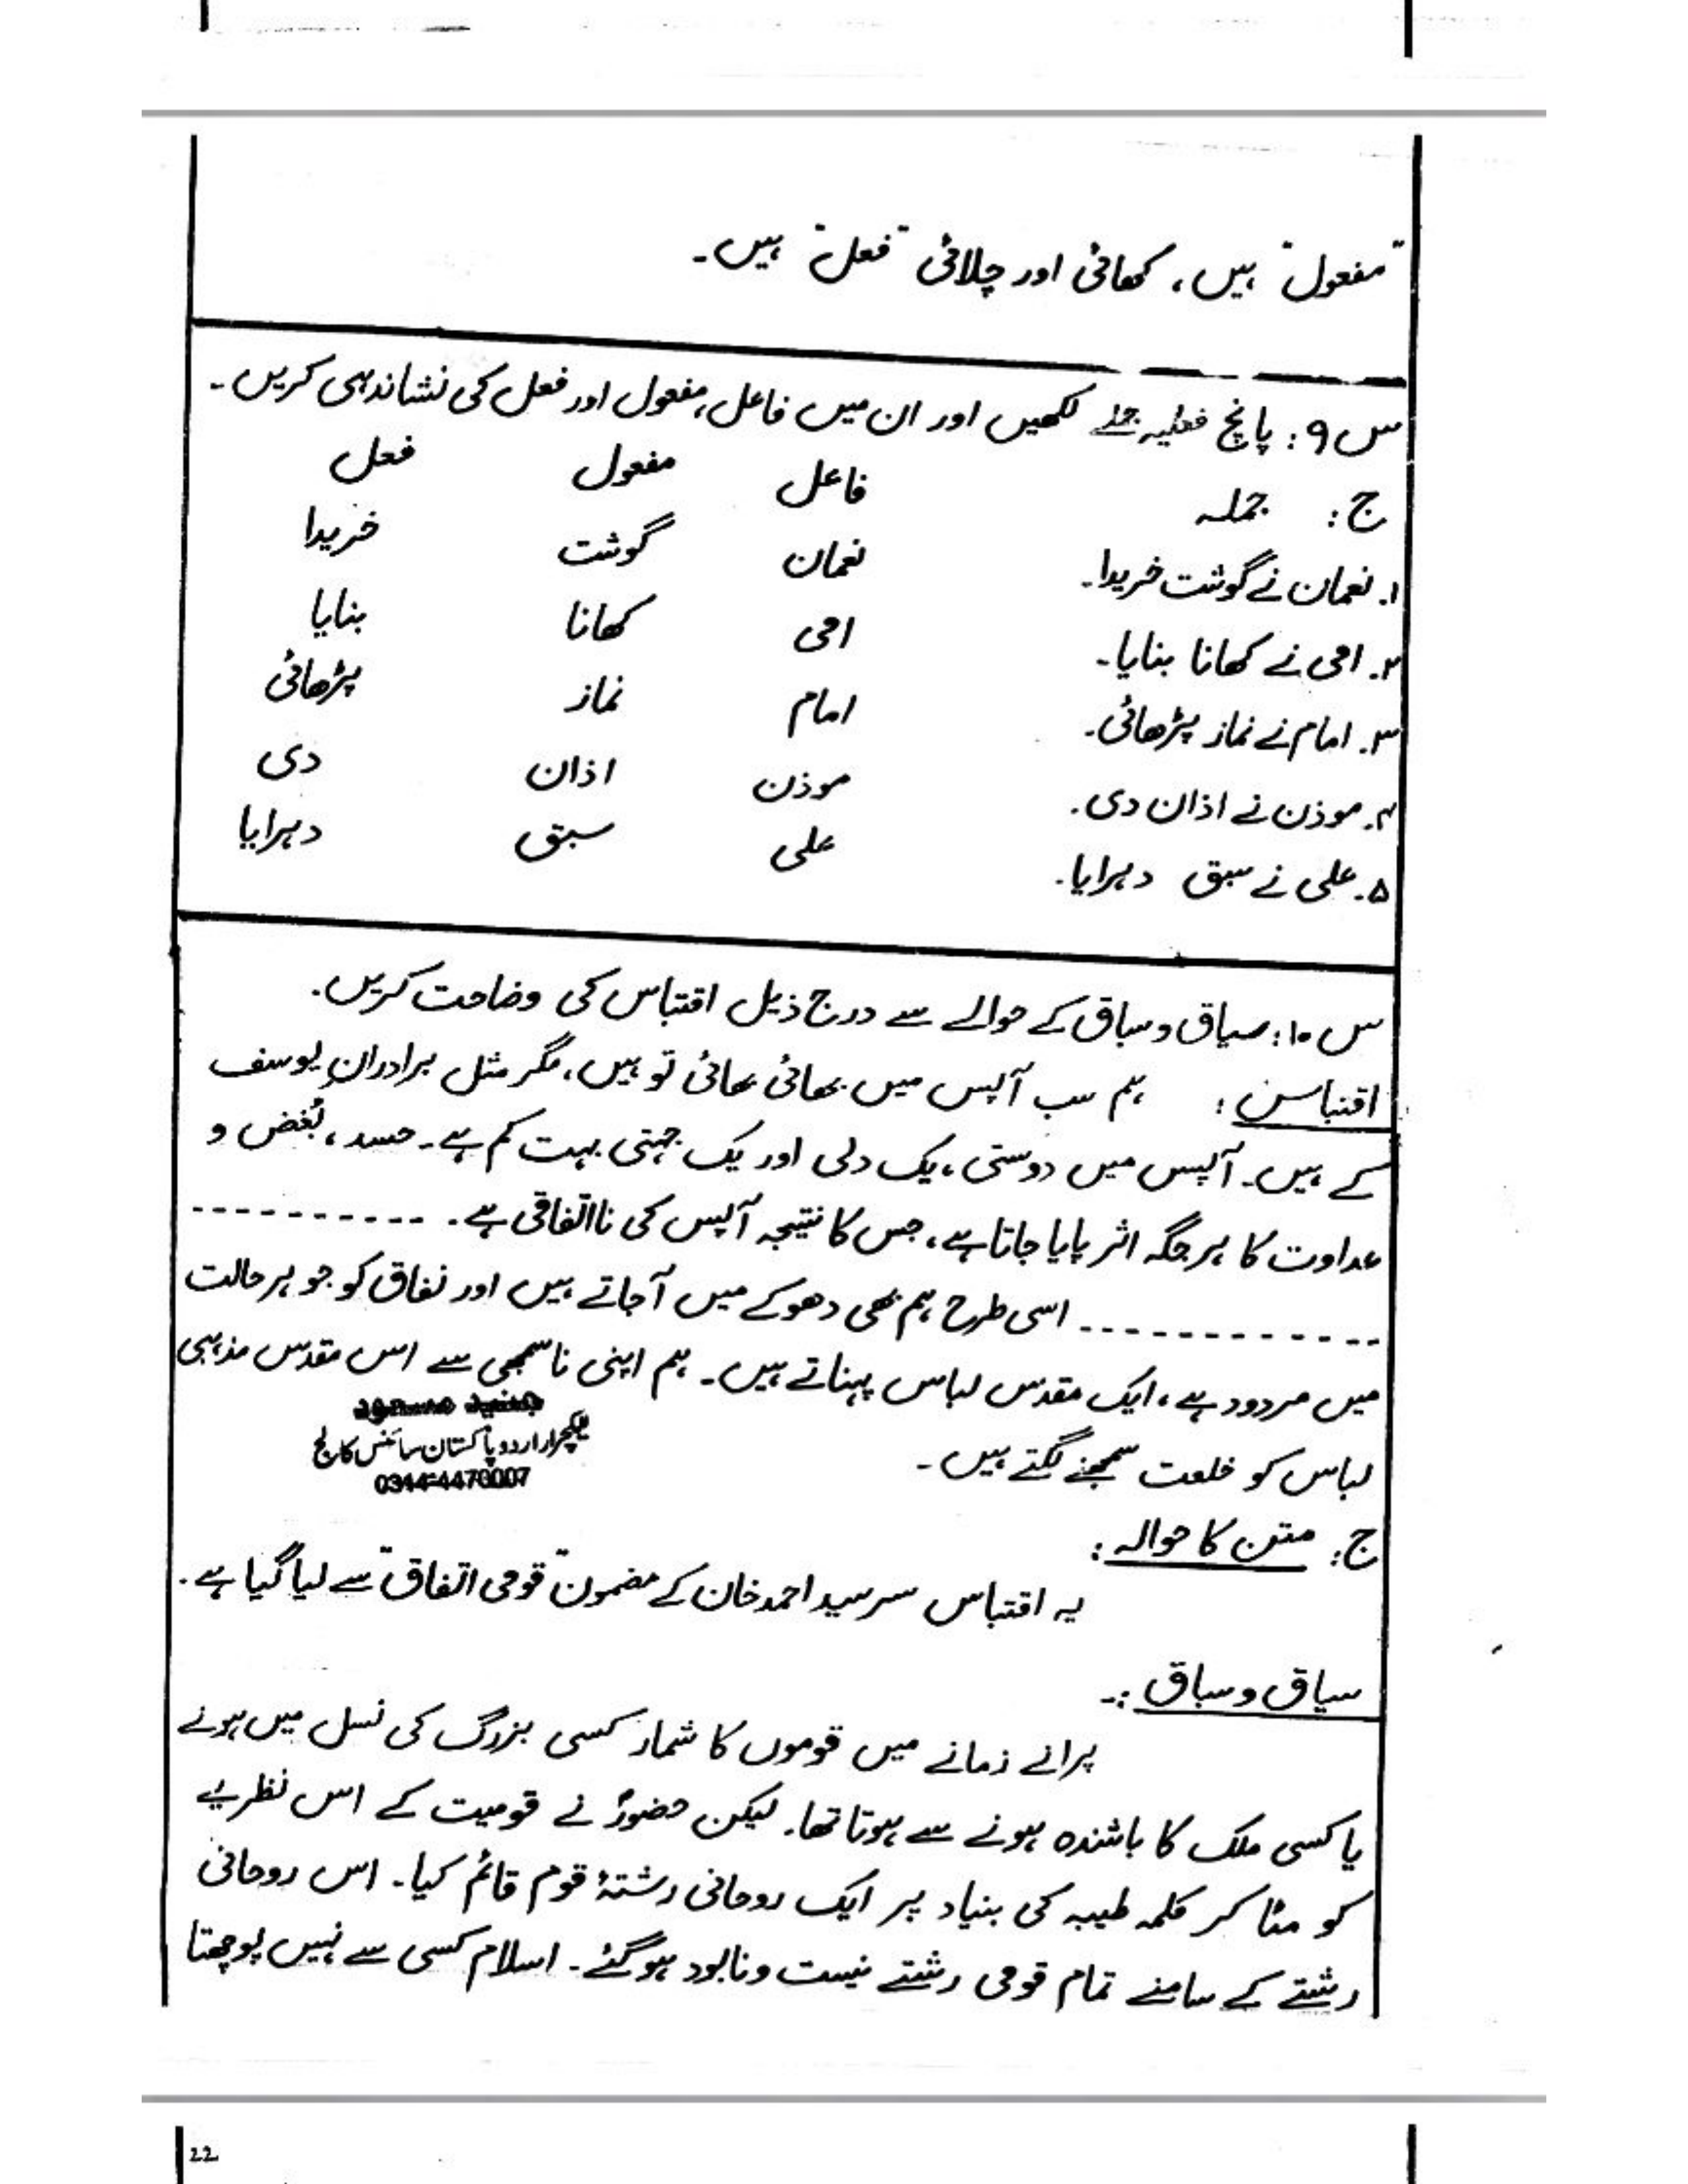 "مفعول" ہیں، کھائی اور چلائی "فعل" ہیں۔
س ۹: پانچ فعلیہ جملے لکھیں اور ان میں فاعل، مفعول اور فعل کی نشاندہی کریں۔
ج: جملہ فاعل مفعول فعل
۱. نعمان نے گوشت خریدا۔ نعمان گوشت خریدا
۲. امی نے کھانا بنایا۔ امی کھانا بنایا
۳. امام نے نماز پڑھائی۔ امام نماز پڑھائی
۴. موذن نے اذان دی۔ موذن اذان دی
۵. علی نے سبق دہرایا۔ علی سبق دہرایا
س ۱۰: سیاق و سباق کے حوالے سے درج ذیل اقتباس کی وضاحت کریں۔
اقتباس: ہم سب آپس میں بھائی بھائی تو ہیں، مگر مثل برادرانِ یوسف
کے ہیں۔ آپس میں دوستی، یک دلی اور یک جہتی بہت کم ہے۔ حسد، بُغض و
عداوت کا ہر جگہ اثر پایا جاتا ہے، جس کا نتیجہ آپس کی نااتفاقی ہے۔ ----------
------------ اسی طرح ہم بھی دھوکے میں آجاتے ہیں اور نفاق کو جو ہر حالت
میں مردود ہے، ایک مقدس لباس پہناتے ہیں۔ ہم اپنی ناسمجھی سے اس مقدس مذہبی
لباس کو خلعت سمجھنے لگتے ہیں۔
جنید مسعود
لیکچرار اردو پاکستان سائنس کالج
0344-4470007
ج: متن کا حوالہ:
یہ اقتباس سرسید احمد خان کے مضمون "قومی اتفاق" سے لیا گیا ہے۔
سیاق و سباق :-
پرانے زمانے میں قوموں کا شمار کسی بزرگ کی نسل میں ہونے
یا کسی ملک کا باشندہ ہونے سے ہوتا تھا۔ لیکن حضورؐ نے قومیت کے اس نظریے
کو مٹا کر کلمہ طیبہ کی بنیاد پر ایک روحانی رشتۂ قوم قائم کیا۔ اس روحانی
رشتے کے سامنے تمام قومی رشتے نیست و نابود ہوگئے۔ اسلام کسی سے نہیں پوچھتا
22